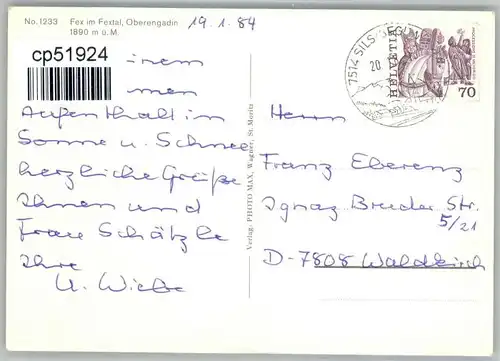 No. 1233 Fex im Fextal, Oberengadin
1890 m ü. M.
19.1.84
cp51924
men
Aufenthalt in
Sonne u. Schnee
herzliche Grüße
Ihnen und
Frau Schätzle
Ihre
U. Wiebe
Verlag: PHOTO MAX, Wagner, St. Moritz
7514 SILS/SEGL
20.
HELVETIA
70
Herrn
Franz Eberenz
Ignaz Bruder Str.
5/21
D-7808 Waldkirch